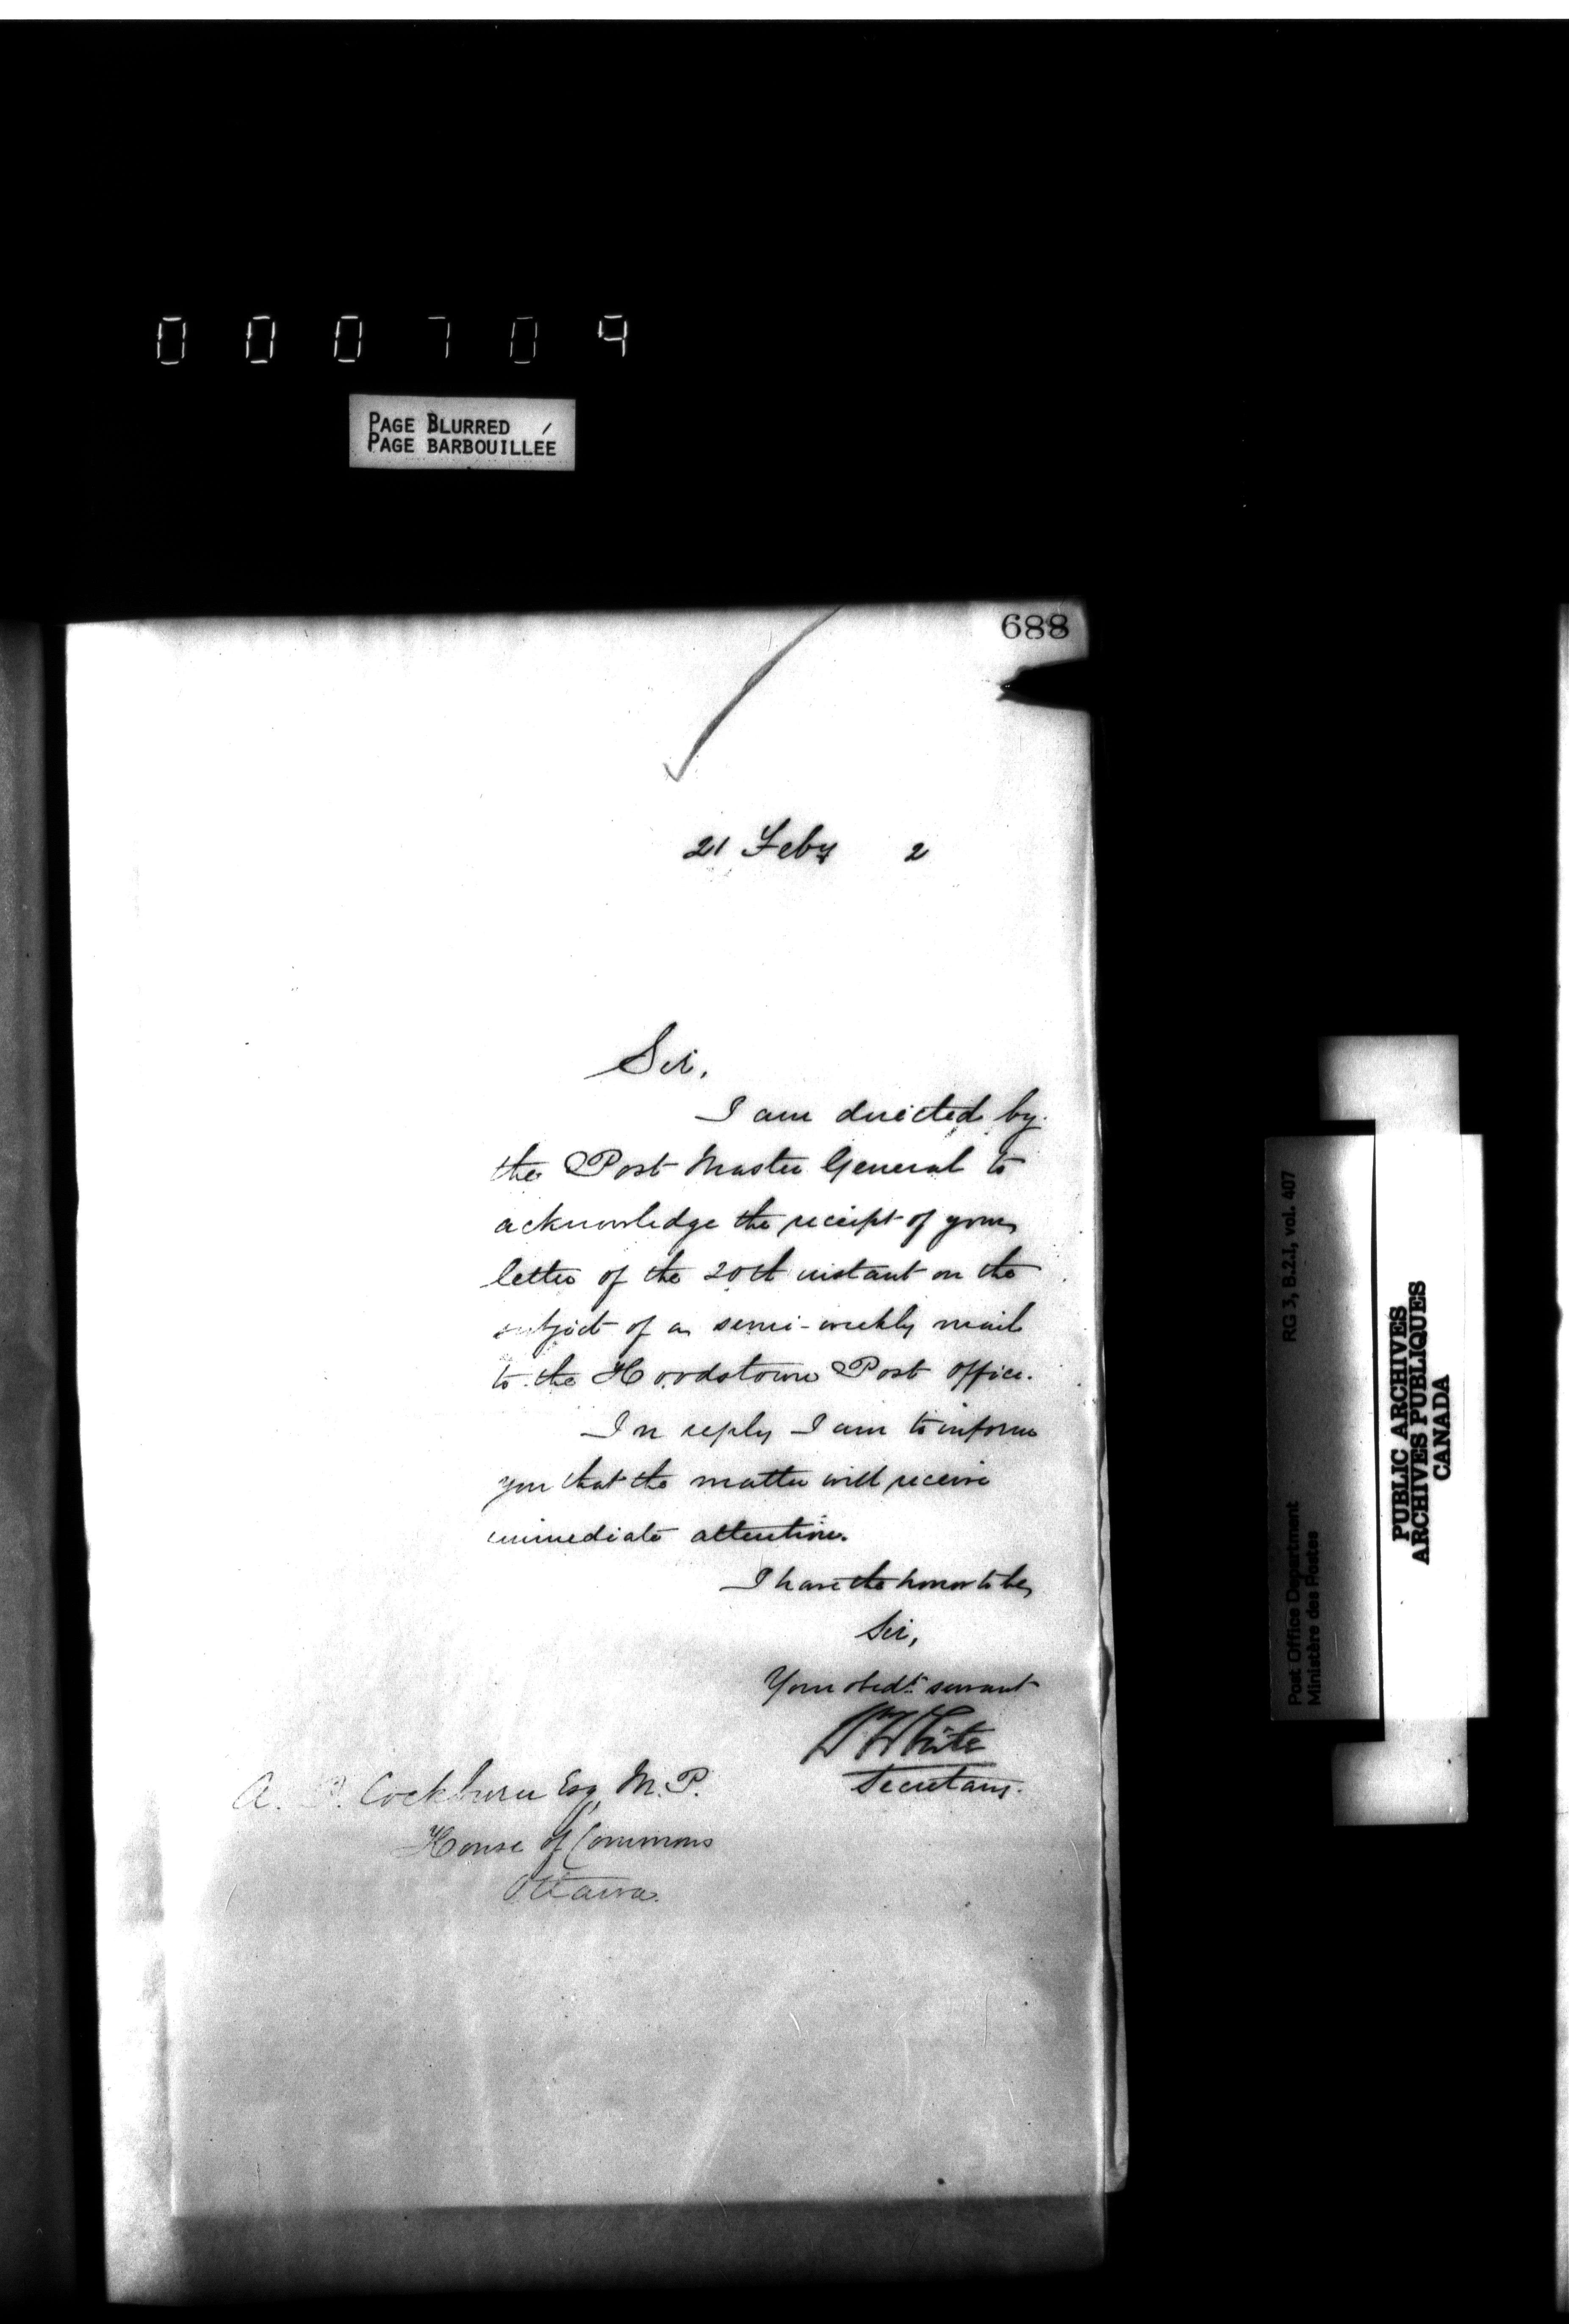 000709
PAGE BLURRED /
PAGE BARBOUILLÉE
688
21 Feby 2
Sir,
I am directed by
the Post Master General to
acknowledge the receipt of your
letter of the 20th instant on the
subject of a semi-weekly mail
to the Hoodstown Post Office.
In reply I am to inform
you that the matter will receive
immediate attention.
I have the honor to be,
Sir,
Your obedt. servant
W White
Secretary.
A. P. Cockburn Esq, M.P.
House of Commons
Ottawa.
Post Office Department RG 3, B.2.I, vol. 407
Ministère des Postes
PUBLIC ARCHIVES
ARCHIVES PUBLIQUES
CANADA